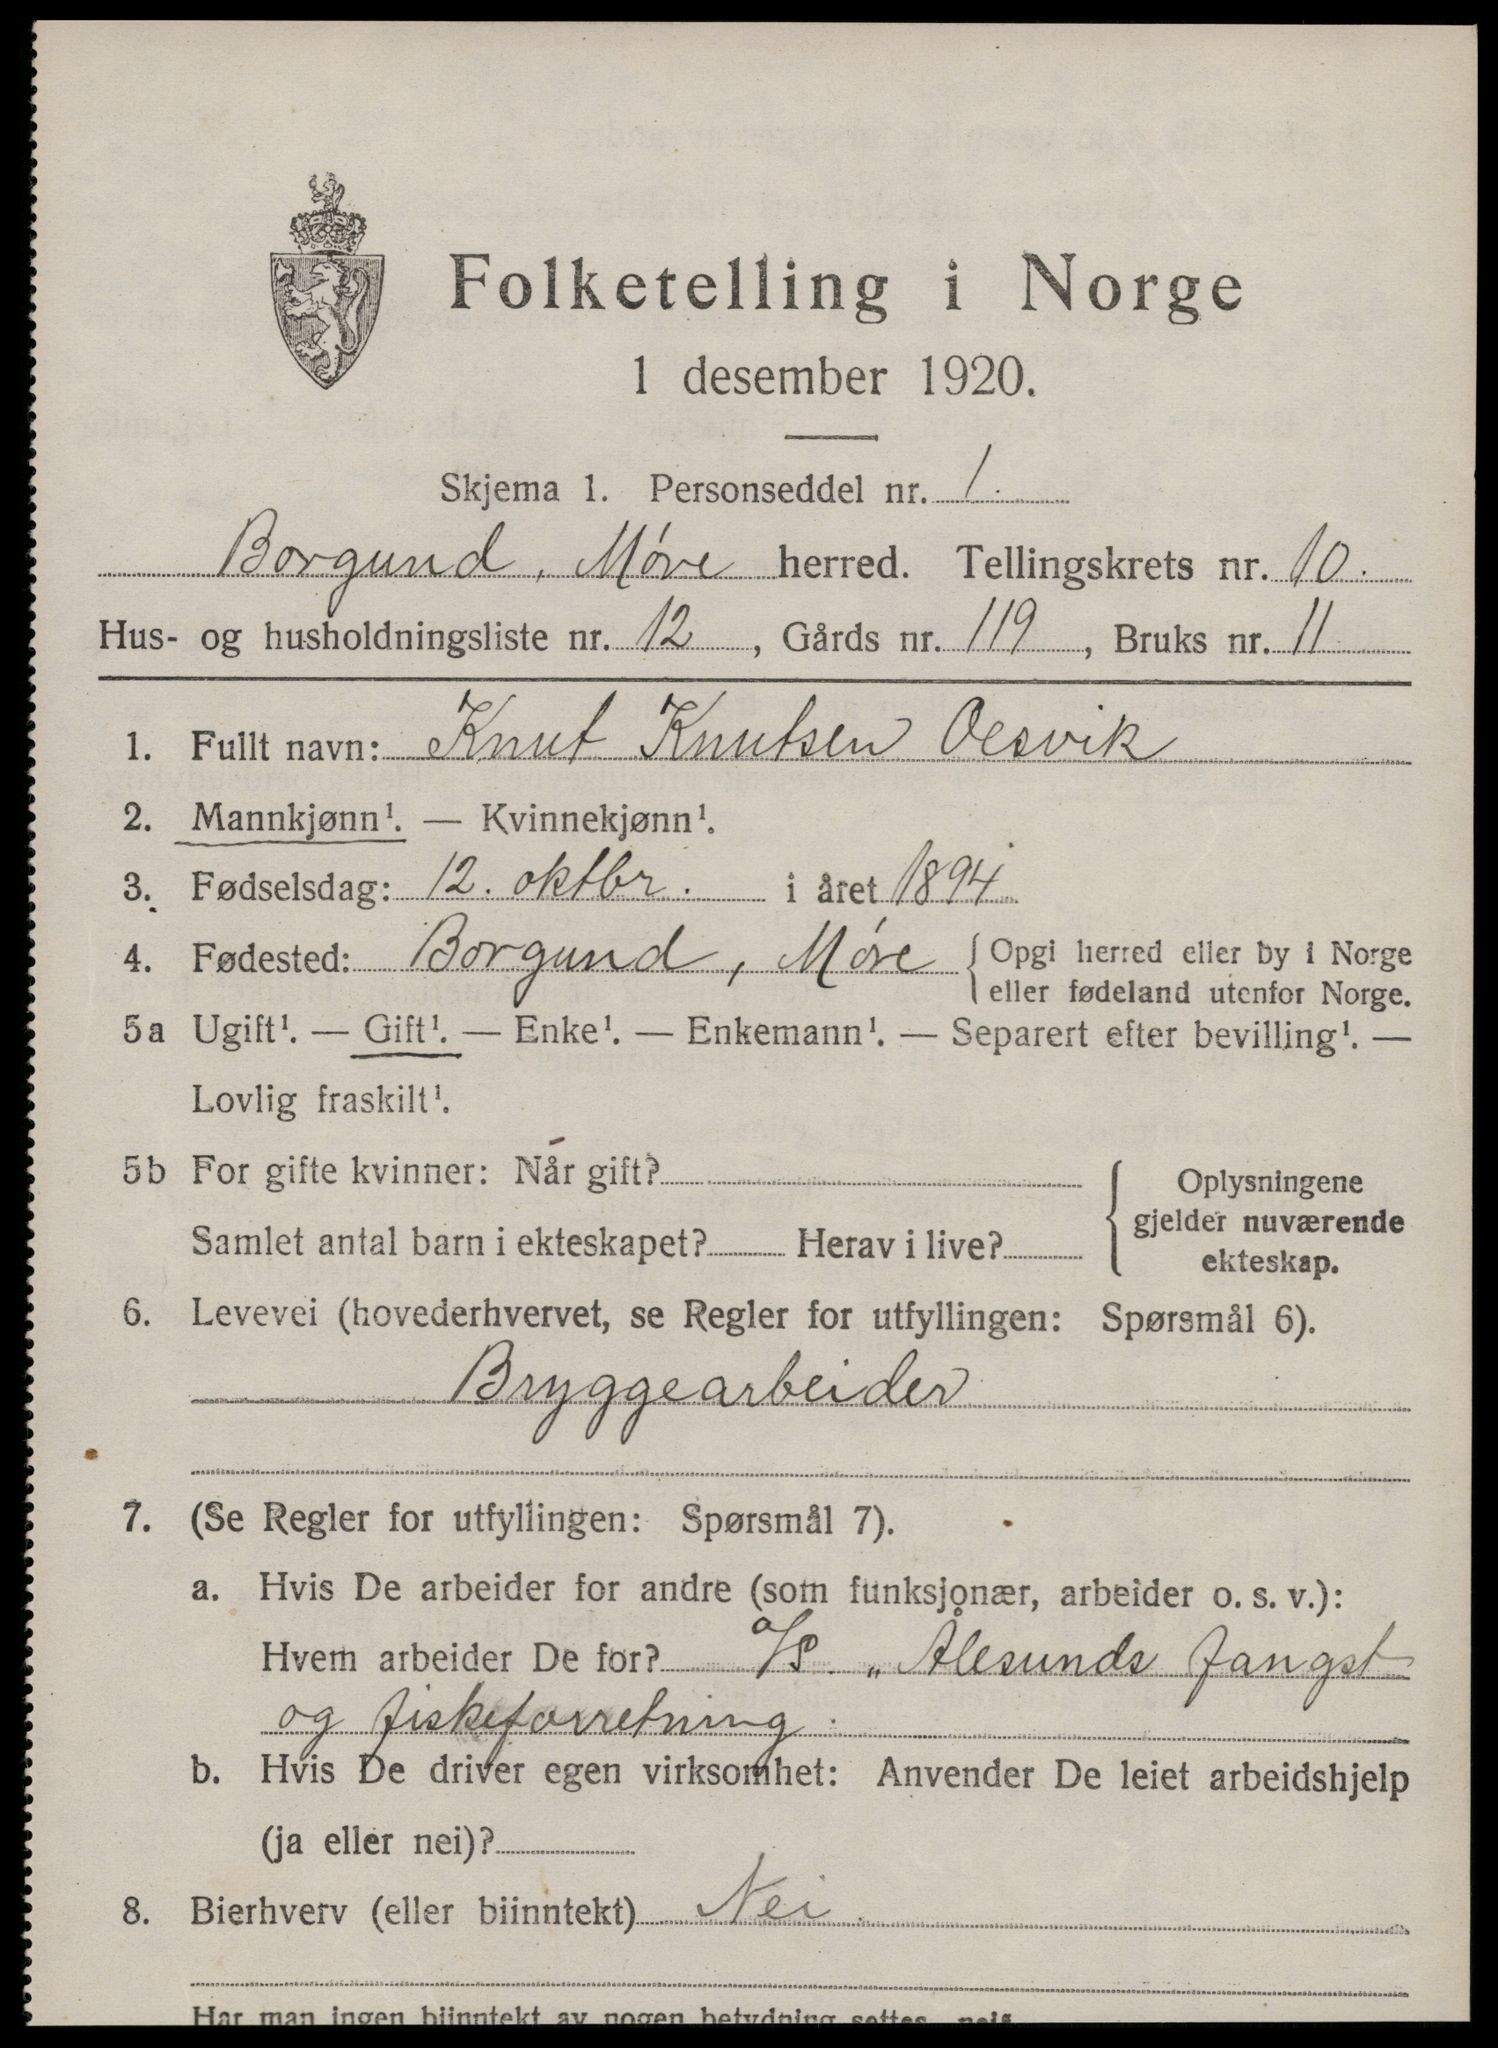 Folketelling i Norge
1 desember 1920.
Skjema 1. Personseddel nr. 1.
Borgund, Møre herred. Tellingskrets nr. 10.
Hus- og husholdningsliste nr. 12, Gårds nr. 119, Bruks nr. 11
1. Fullt navn: Knut Knutsen Oesvik
2. Mannkjønn¹. — Kvinnekjønn¹.
3. Fødselsdag: 12. oktbr. i året 1894
4. Fødested: Borgund, Møre { Opgi herred eller by i Norge
eller fødeland utenfor Norge.
5a Ugift¹. — Gift¹. — Enke¹. — Enkemann¹. — Separert efter bevilling¹. —
Lovlig fraskilt¹.
5b For gifte kvinner: Når gift?
Samlet antal barn i ekteskapet? Herav i live?
{ Oplysningene
gjelder nuværende
ekteskap.
6. Levevei (hovederhvervet, se Regler for utfyllingen: Spørsmål 6).
Bryggearbeider
7. (Se Regler for utfyllingen: Spørsmål 7).
a. Hvis De arbeider for andre (som funksjonær, arbeider o. s. v.):
Hvem arbeider De for? a/s. „Ålesunds fangst
og fiskeforretning.
b. Hvis De driver egen virksomhet: Anvender De leiet arbeidshjelp
(ja eller nei)?
8. Bierhverv (eller biinntekt) Nei.
Har man ingen biinntekt av nogen betydning settes „nei"